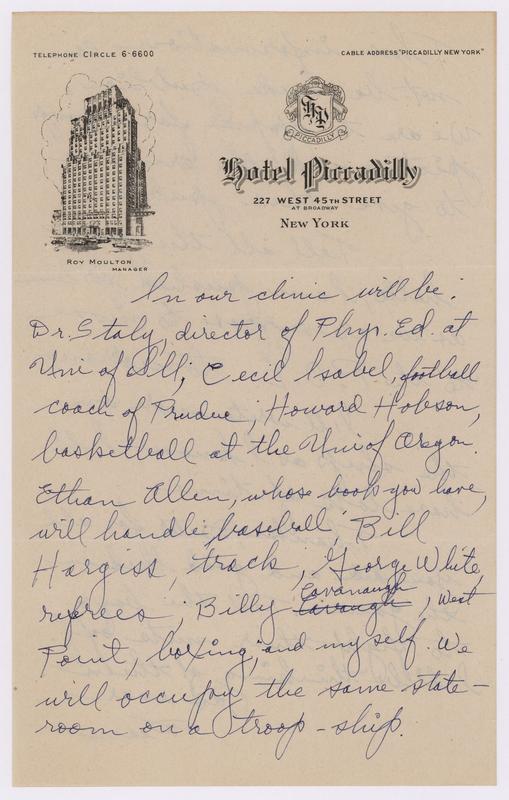 TELEPHONE CIRCLE 6-6600
CABLE ADDRESS "PICCADILLY NEW YORK"
HP
PICCADILLY
Hotel Piccadilly
227 WEST 45TH STREET
AT BROADWAY
NEW YORK
ROY MOULTON
MANAGER
In our clinic will be:
Dr. Staly, director of Phys. Ed. at
Uni of Ill; Cecil Isabel, football
coach of Prudue; Howard Hobson,
basketball at the Uni of Oregon.
Ethan Allen, whose book you have,
will handle baseball; Bill
Hargiss, track; George White,
refrees; Billy Cavaugh Cavanaugh, West
Point, boxing; and myself. We
will occupy the same state-
room on a troop-ship.